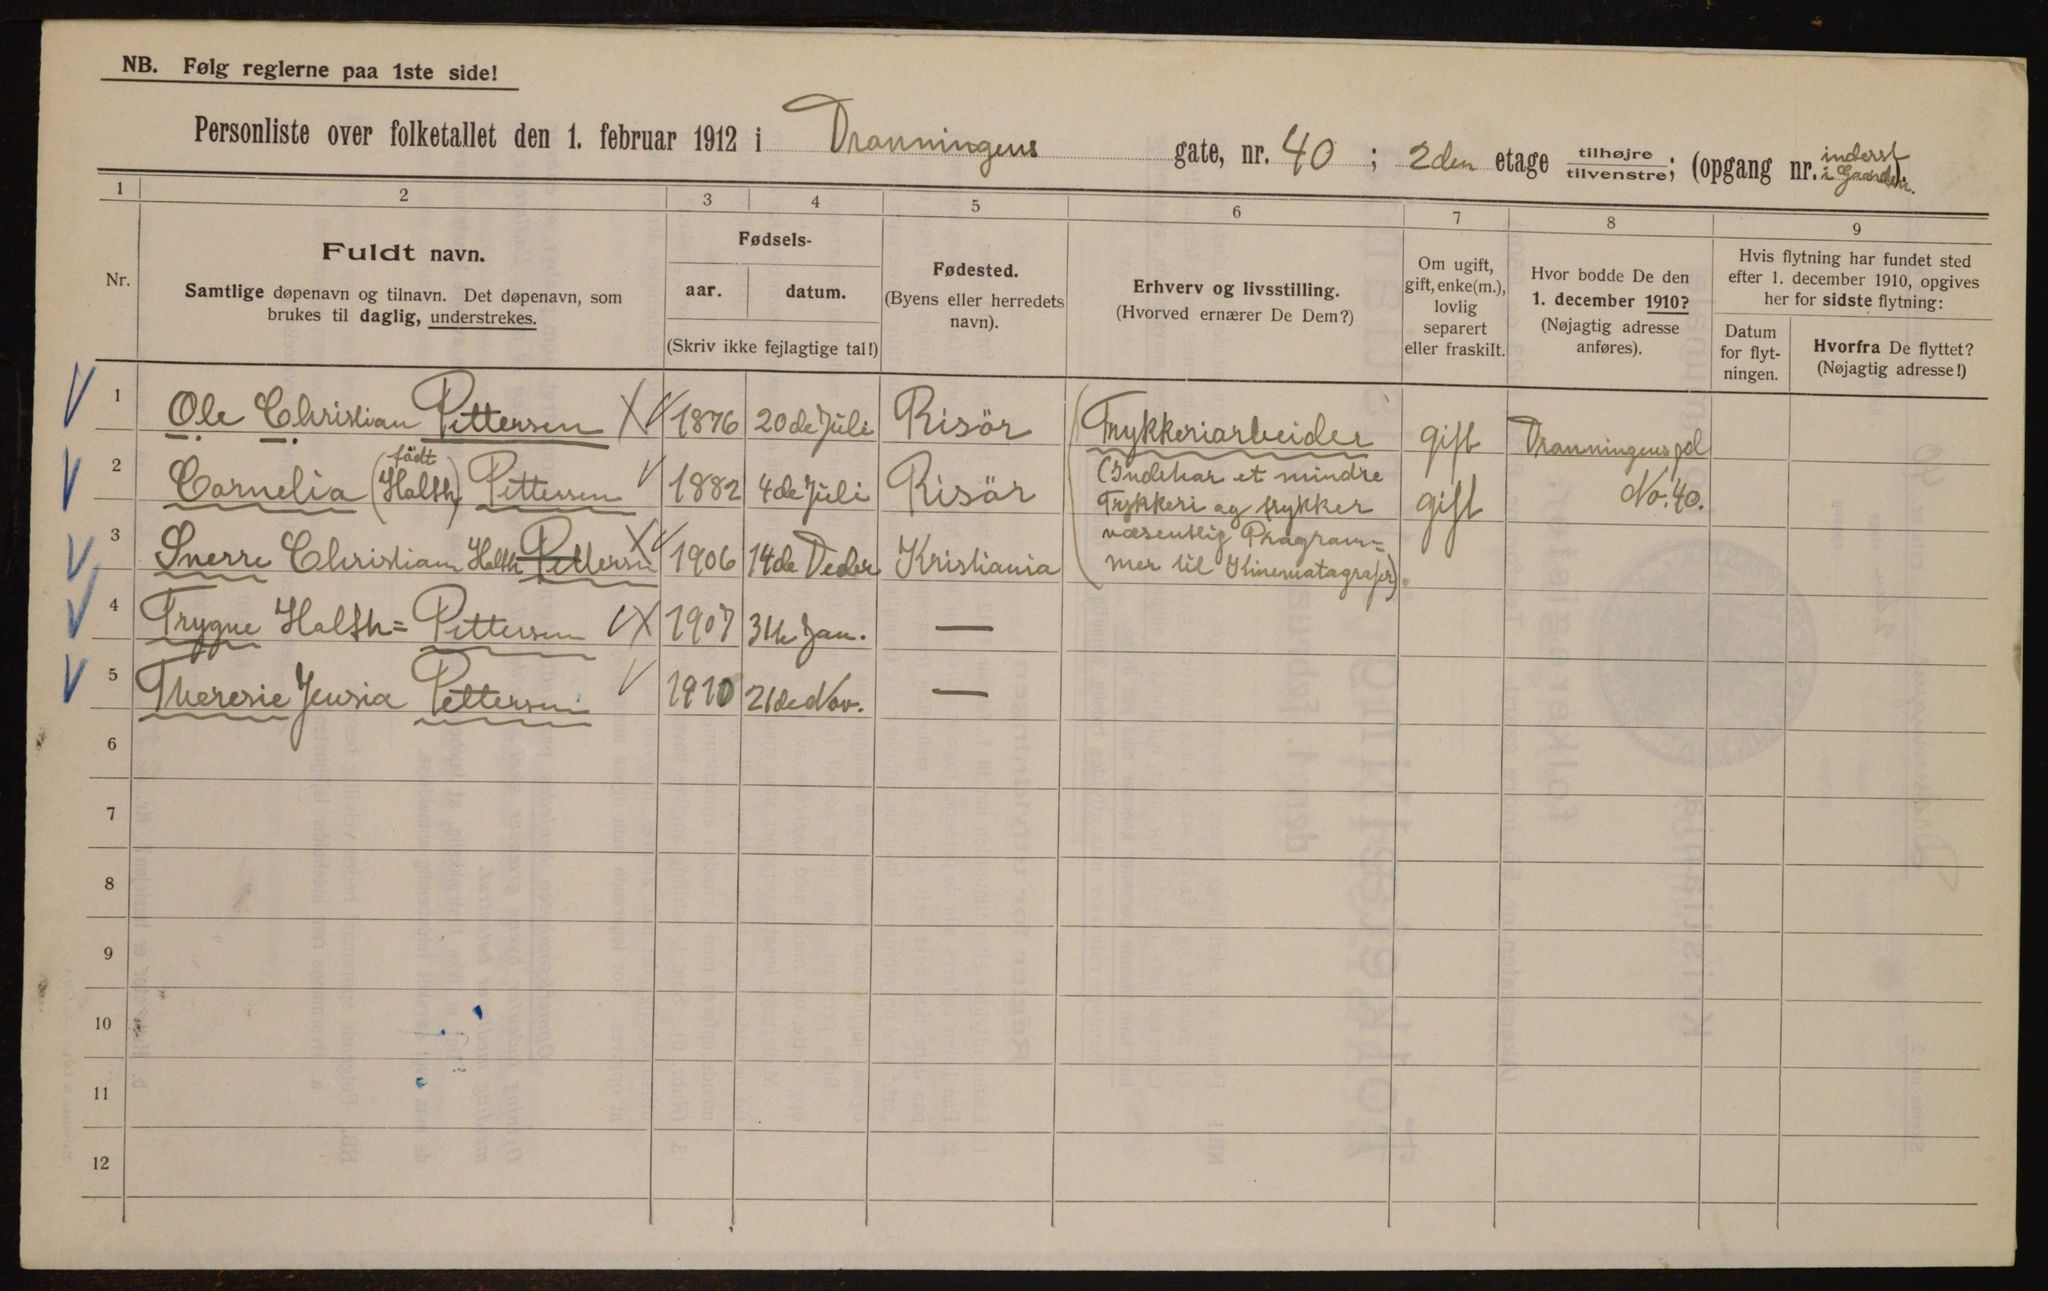 NB. Følg reglerne paa 1ste side!
Personliste over folketallet den 1. februar 1912 i Dronningens gate, nr. 40 ; 2den etage tilhøjre tilvenstre; (opgang nr. inderst i Gaarden).
1 2 3 4 5 6 7 8 9
Nr.
Fuldt navn.
Samtlige døpenavn og tilnavn. Det døpenavn, som
brukes til daglig, understrekes.
Fødsels-
aar. datum.
(Skriv ikke fejlagtige tal!)
Fødested.
(Byens eller herredets
navn).
Erhverv og livsstilling.
(Hvorved ernærer De Dem?)
Om ugift,
gift, enke(m.),
lovlig
separert
eller fraskilt.
Hvor bodde De den
1. december 1910?
(Nøjagtig adresse
anføres).
Hvis flytning har fundet sted
efter 1. december 1910, opgives
her for sidste flytning:
Datum
for flyt-
ningen.
Hvorfra De flyttet?
(Nøjagtig adresse!)
1 Ole Christian Pettersen 1876 20de Juli Risör Trykkeriarbeider gift Dronningensgd
2 Cornelia (födt Holth) Pettersen 1882 4de Juli Risör (Indehar et mindre gift No. 40.
Trykkeri og trykker
3 Sverre Christian Holth Pettersen 1906 14de Decbr Kristiania væsentlig Program=
mer til Kinematografer).
4 Trygve Holth= Pettersen 1907 31te Jan. —
5 Theresie Jensia Pettersen 1910 21de Nov. —
6
7
8
9
10
11
12